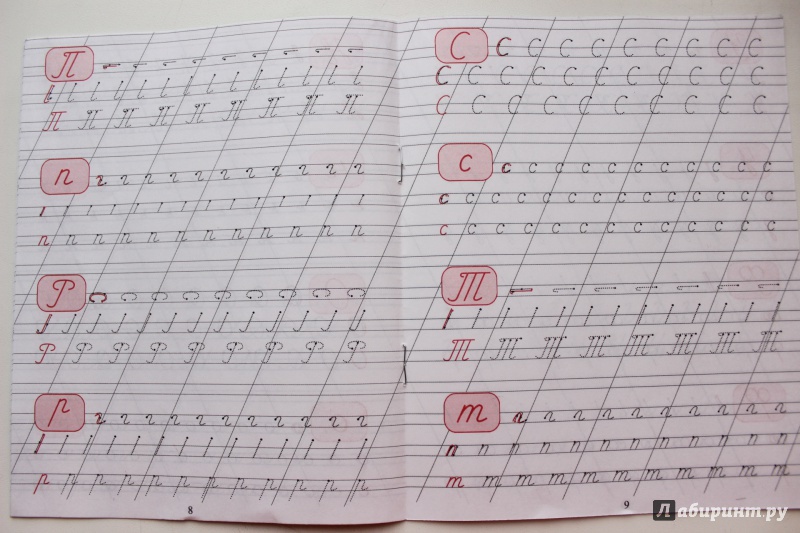 П
П П П П П П П П П
п
п п п п п п п п п п п п
Р
Р Р Р Р Р Р Р Р Р
р
р р р р р р р р р р р р
8
С С С С С С С С С С
С С С С С С С С С С С
С С С С С С С С С С
с с с с с с с с с с с с
с с с с с с с с с с с с с
с с с с с с с с с с с с с
Т
Т Т Т Т Т Т Т Т
т
п п п п п п п п п п п
т т т т т т т т т т т
9
Лабиринт.ру